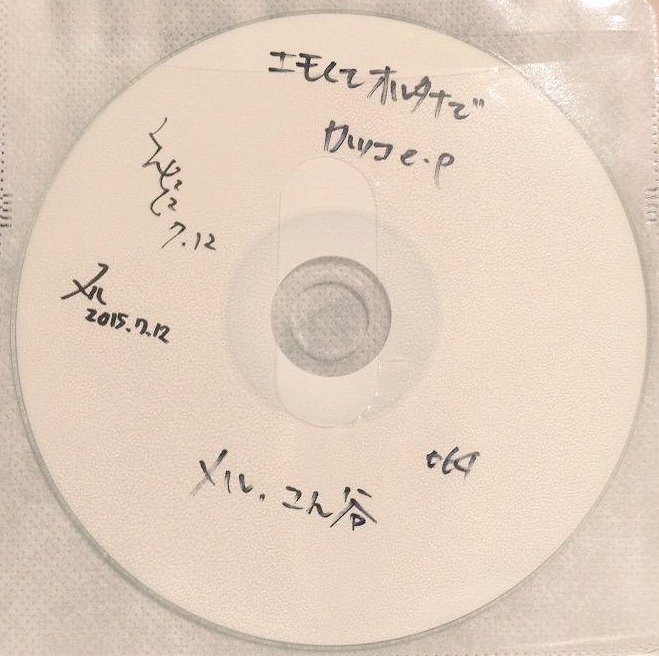 エモくてオルタナで
カッコe.p
7.12
メル
2015.7.12
メル, こん谷